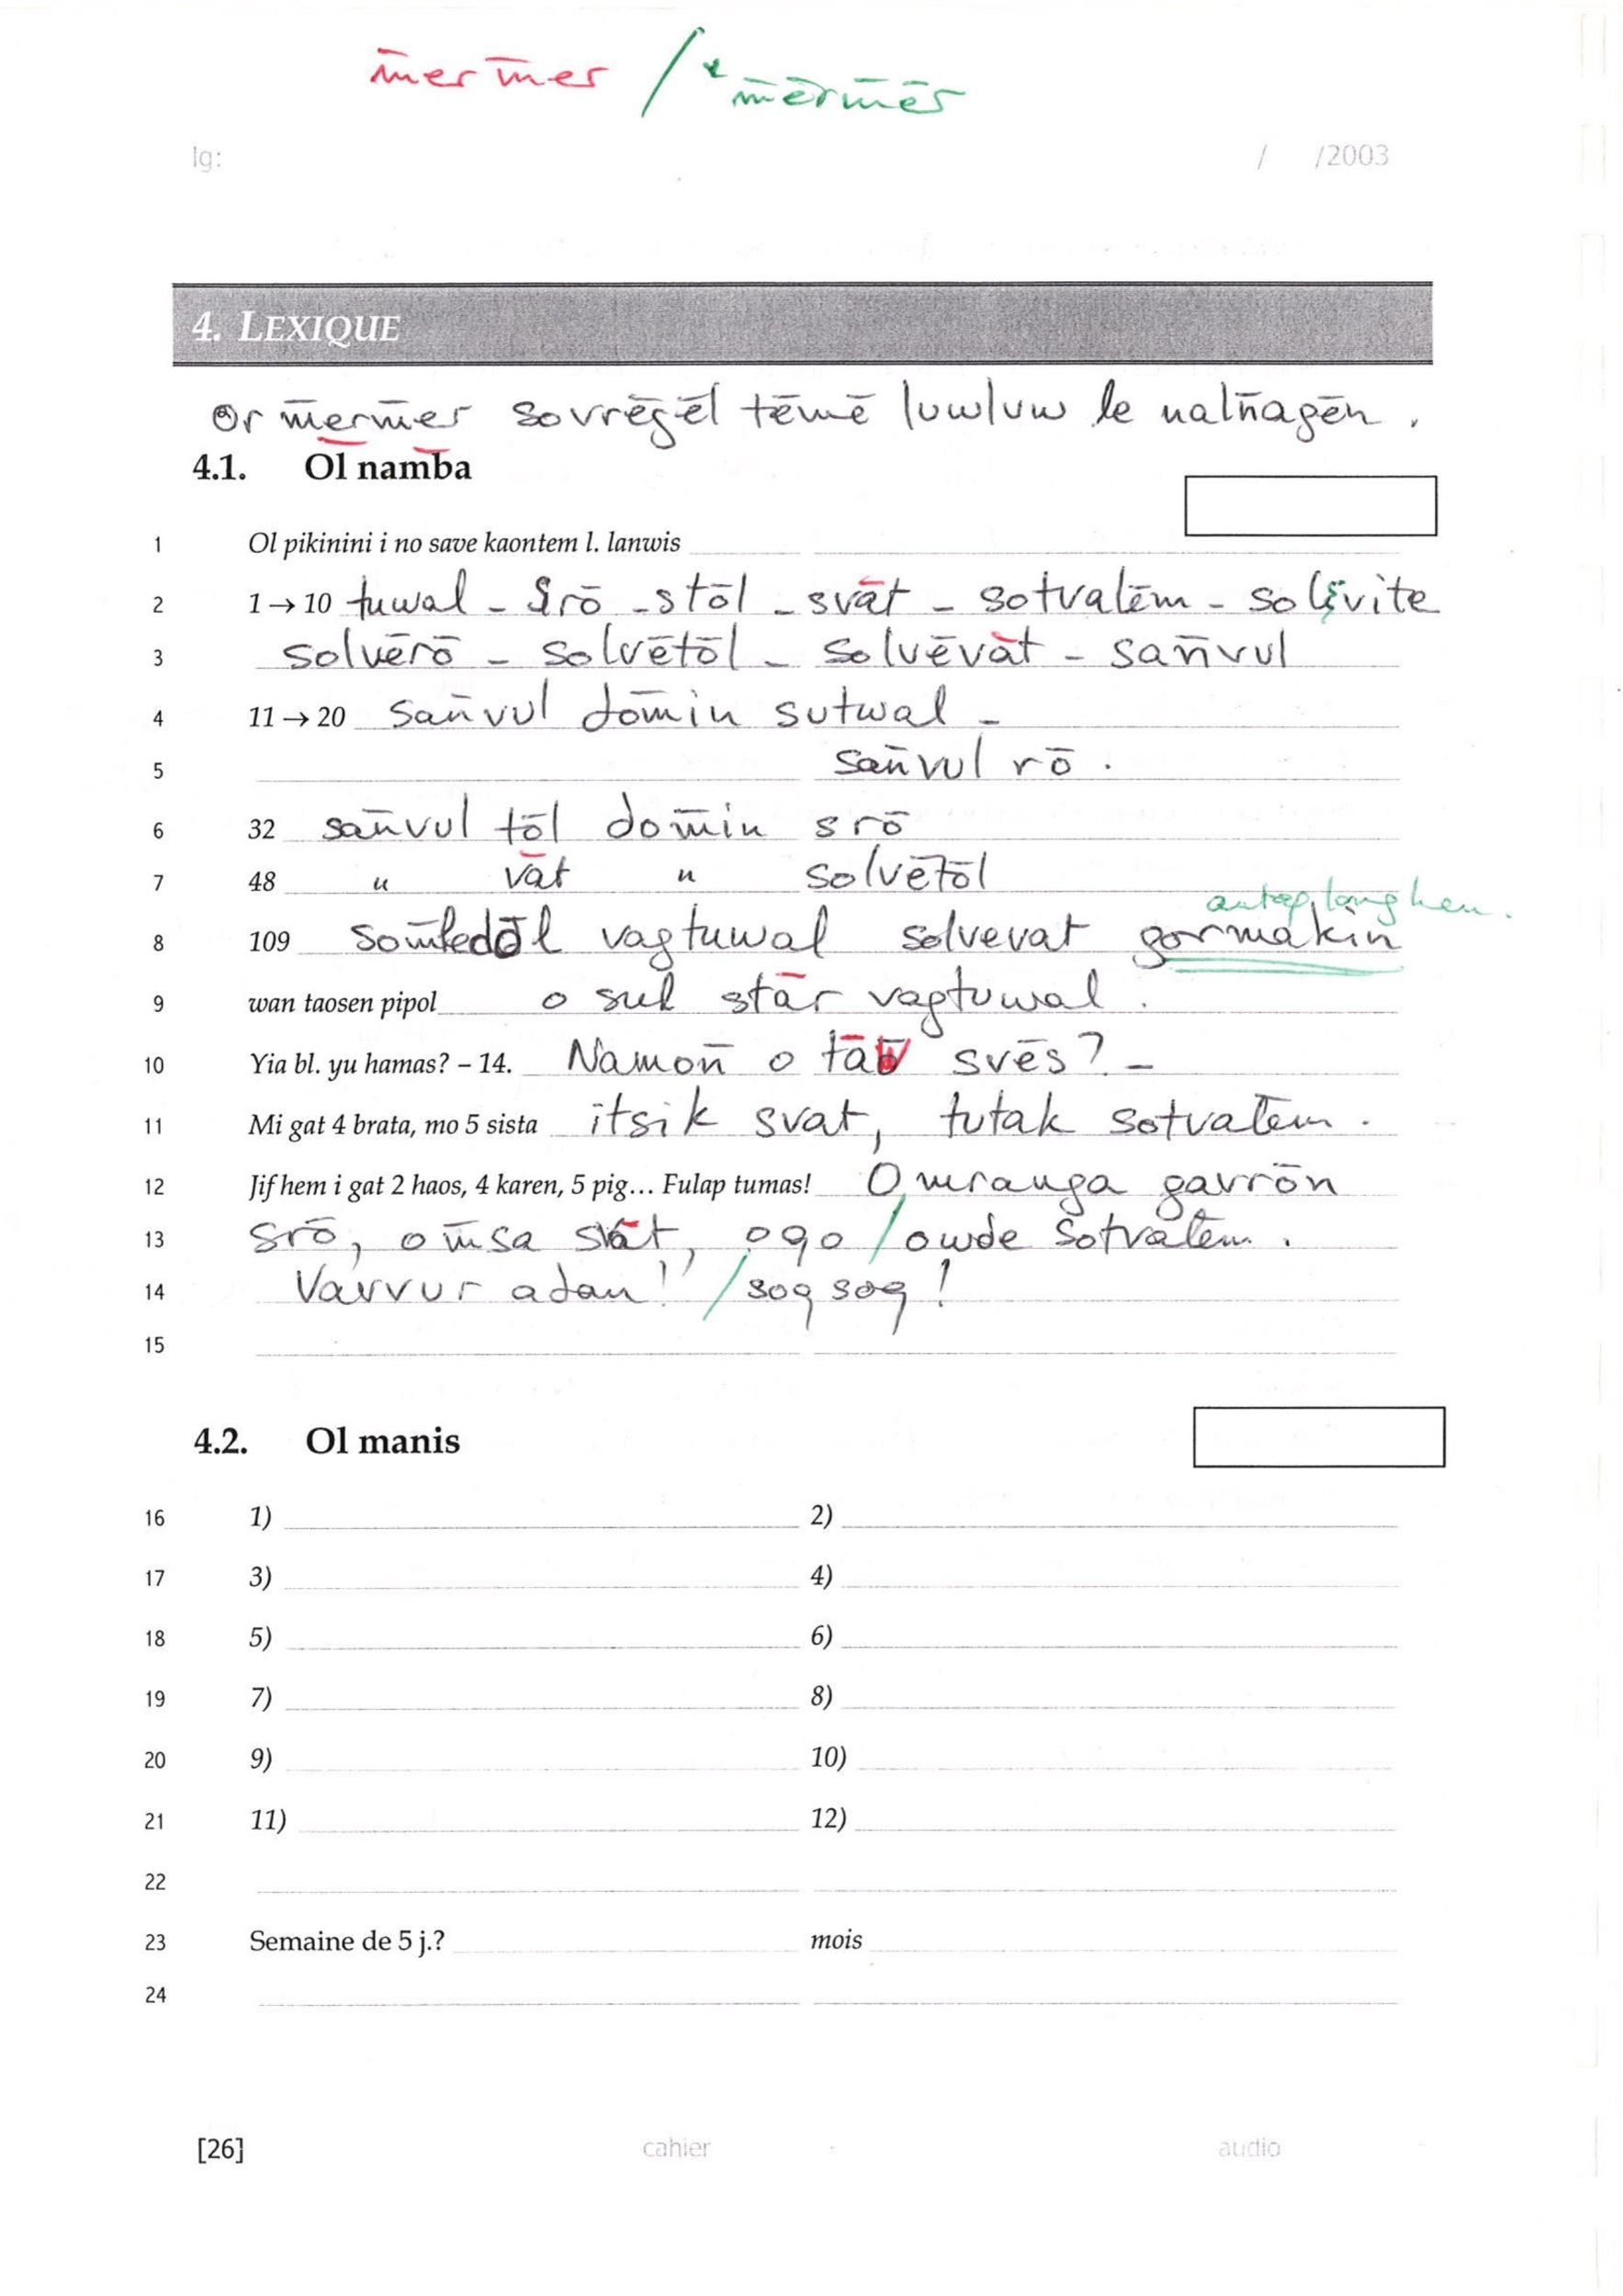 m̄erm̄er / * m̄ērm̄ēr
lg: / /2003
4. LEXIQUE
Or m̄erm̄er sovrēḡēl tēmē luwluw le naln̄agēn.
4.1. Ol namba
1 Ol pikinini i no save kaontem l. lanwis
2 1→10 tuwal - srō - stōl - svāt - sotvalēm - solēvite
3 solvērō - solvētōl - solvēvāt - san̄vul
4 11→20 san̄vul dom̄in sutwal -
5 san̄vul rō.
6 32 san̄vul tōl dom̄in srō
7 48 " vāt " solvētōl
antap long hem.
8 109 som̄ledōl vagtuwal solvevat gormakin
9 wan taosen pipol o sul stār vagtuwal.
10 Yia bl. yu hamas? – 14. Namon̄ o tāw svēs? -
11 Mi gat 4 brata, mo 5 sista itsik svat, tutak sotvalēm.
12 Jif hem i gat 2 haos, 4 karen, 5 pig… Fulap tumas! O mranga gavrōn
13 srō, o m̄sa svāt, oqo / owde sotvalēm.
14 Varvur adan! / soq soq!
15
4.2. Ol manis
16 1) 2)
17 3) 4)
18 5) 6)
19 7) 8)
20 9) 10)
21 11) 12)
22
23 Semaine de 5 j.? mois
24
[26] cahier audio